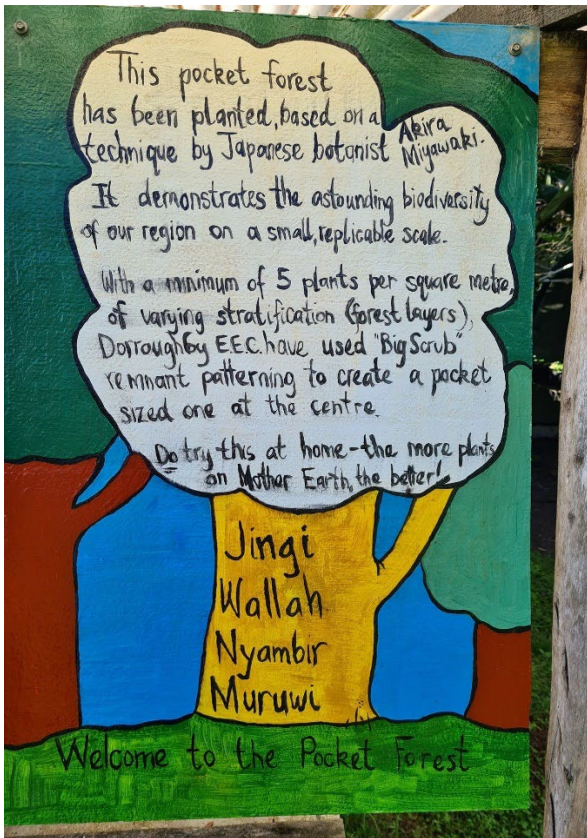 This pocket forest
has been planted, based on a
technique by Japanese botanist Akira Miyawaki.
It demonstrates the astounding biodiversity
of our region on a small, replicable scale.
With a minimum of 5 plants per square metre,
of varying stratification (forest layers),
Dorroughby E.E.C. have used "Big Scrub"
remnant patterning to create a pocket
sized one at the centre.
Do try this at home - the more plants
on Mother Earth, the better!
Jingi
Wallah
Nyambir
Muruwi
Welcome to the Pocket Forest